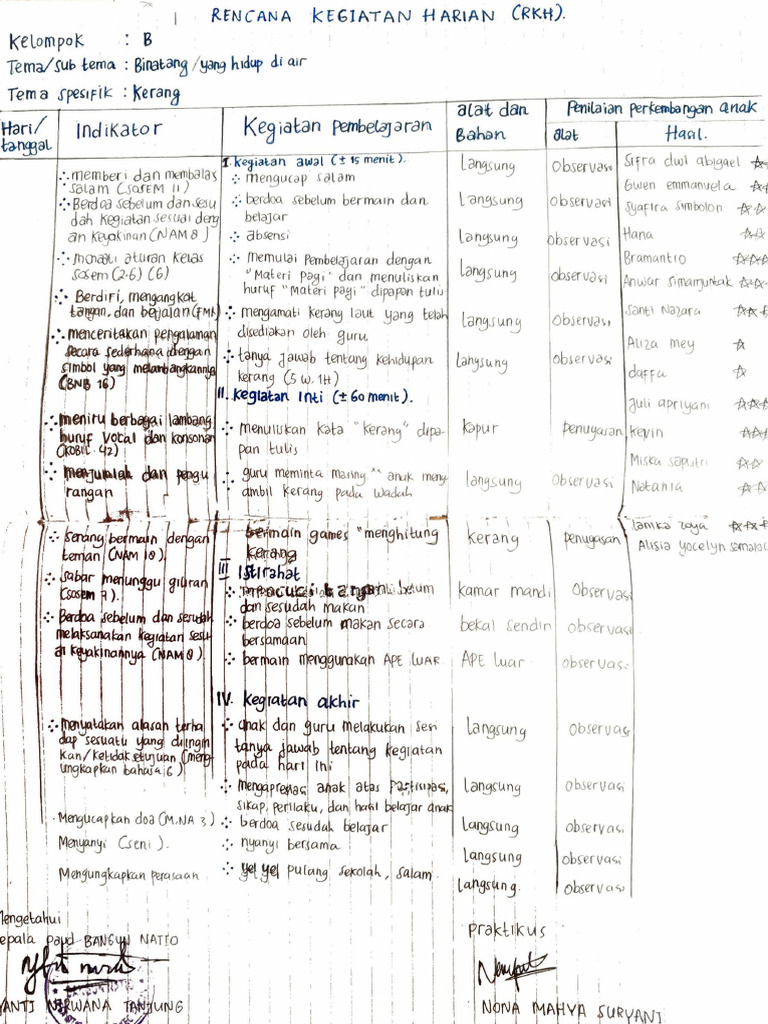 RENCANA KEGIATAN HARIAN (RKH).
Kelompok : B
Tema/sub tema : Binatang/yang hidup di air
Tema spesifik : Kerang
Hari/
tanggal
Indikator
Kegiatan Pembelajaran
alat dan
Bahan
Penilaian perkembangan anak
alat
Hasil.
memberi dan membalas
salam (sosem 11)
Berdoa sebelum dan sesu
dah kegiatan sesuai deng
an keyakinan (NAM 8)
menaati aturan kelas
sosem (2.6) (6)
Berdiri, mengangkat
tangan, dan berjalan
menceritakan pengalaman
secara sederhana dengan
simbol yang melambangkannya
(BNB 16)
meniru berbagai lambang
huruf vokal dan konsonan
menjumlah dan pengu
rangan
senang bermain dengan
teman (NAM 10)
sabar menunggu giliran
(sosem 7).
Berdoa sebelum dan sesudah
melaksanakan kegiatan sesu
ai keyakinannya (NAM 8)
menyatakan alasan terha
dap sesuatu yang diingin
kan/ketidaksetujuan (meng
ungkapkan bahasa 6)
Mengucapkan doa (M.NA 3)
Menyanyi (seni).
Mengungkapkan perasaan
I. Kegiatan awal (± 15 menit).
mengucap salam
berdoa sebelum bermain dan
belajar
absensi
memulai Pembelajaran dengan
"Materi pagi" dan menuliskan
huruf "Materi pagi" dipapan tulis
mengamati kerang laut yang telah
disediakan oleh guru
tanya jawab tentang kehidupan
kerang (5 w. 1H)
II. Kegiatan Inti (± 60 menit).
menuliskan kata "kerang" dipa-
pan tulis
guru meminta masing" anak meng
ambil kerang pada wadah
bermain games "menghitung
kerang
III Istirahat
mencuci tangan sebelum
dan sesudah makan
berdoa sebelum makan secara
bersamaan
bermain menggunakan APE LUAR
IV. kegiatan akhir
anak dan guru melakukan sesi
tanya jawab tentang kegiatan
pada hari ini
mengapresiasi anak atas Partisipasi,
sikap, perilaku, dan hasil belajar anak
berdoa sesudah belajar
nyanyi bersama
yel yel pulang sekolah, salam.
Langsung
Langsung
Langsung
Langsung
Langsung
Langsung
kapur
langsung
kerang
kamar mandi
bekal sendiri
APE luar
Langsung
Langsung
Langsung
Langsung
Langsung.
Observasi
Observasi
observasi
observasi
Observasi
observasi
penugasan
Observasi
penugasan
Observasi
observasi
observasi
Observasi
Observasi
observasi
observasi
observasi
Sifra dwi abigael ☆
Gwen emmanuela ☆☆
Syafira simbolon ☆☆
Hana ☆☆
Bramantio ☆☆☆
Anwar simanjuntak ☆☆
Santi Nazara ☆☆☆
Aliza mey ☆
daffa ☆
Juli apriyani ☆☆☆
kevin ☆☆☆
Miska saputri ☆☆
Natania ☆☆
Alisia yocelyn
Mengetahui
epala paud BANGUN NATIO
YANTI NIRWANA TANJUNG
praktikus
NONA MAHYA SURYANI